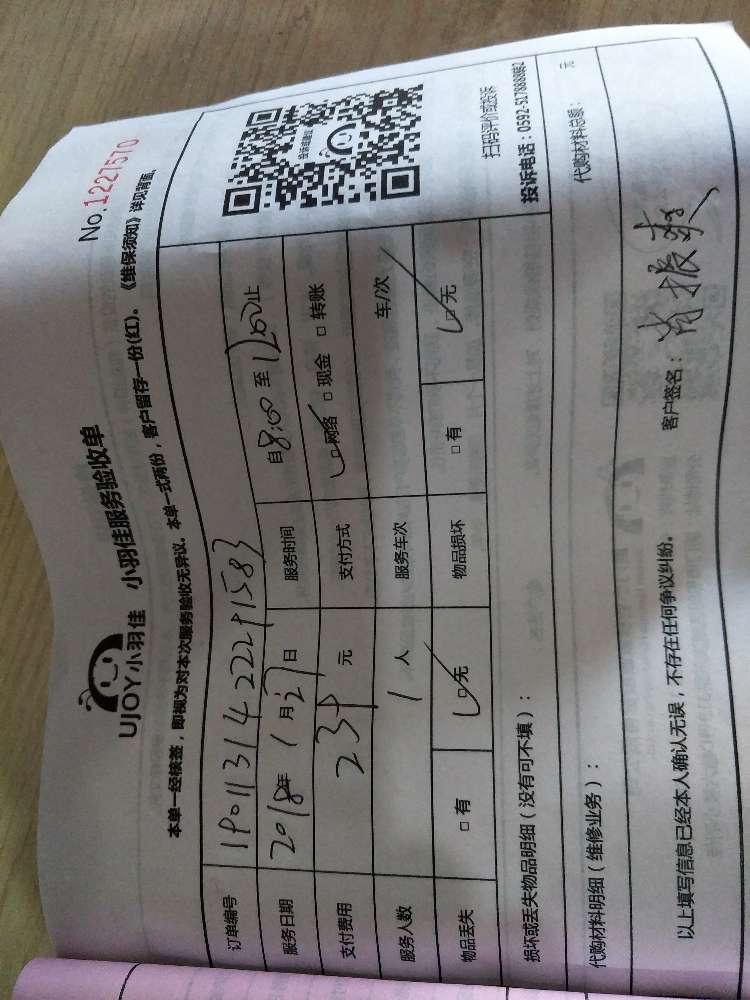 No.1227570
UJOY小羽佳 小羽佳服务验收单
本单一经核签，即视为对本次服务验收无异议。本单一式两份，客户留存一份(红)。《维保须知》详见背面。
订单编号
服务日期 2018年 1月27日 服务时间 自8:00至12:00止
支付费用 元 支付方式 □网络 □现金 □转账
服务人数 1人 服务车次 车/次
物品丢失 □有 □无 物品损坏 □有 □无
投诉或建议
扫码评价或投诉
投诉电话：0592-5178888转2
损坏或丢失物品明细（没有可不填）：
代购材料明细（维修业务）： 代购材料总额： 元
以上填写信息已经本人确认无误，不存在任何争议纠纷。 客户签名：